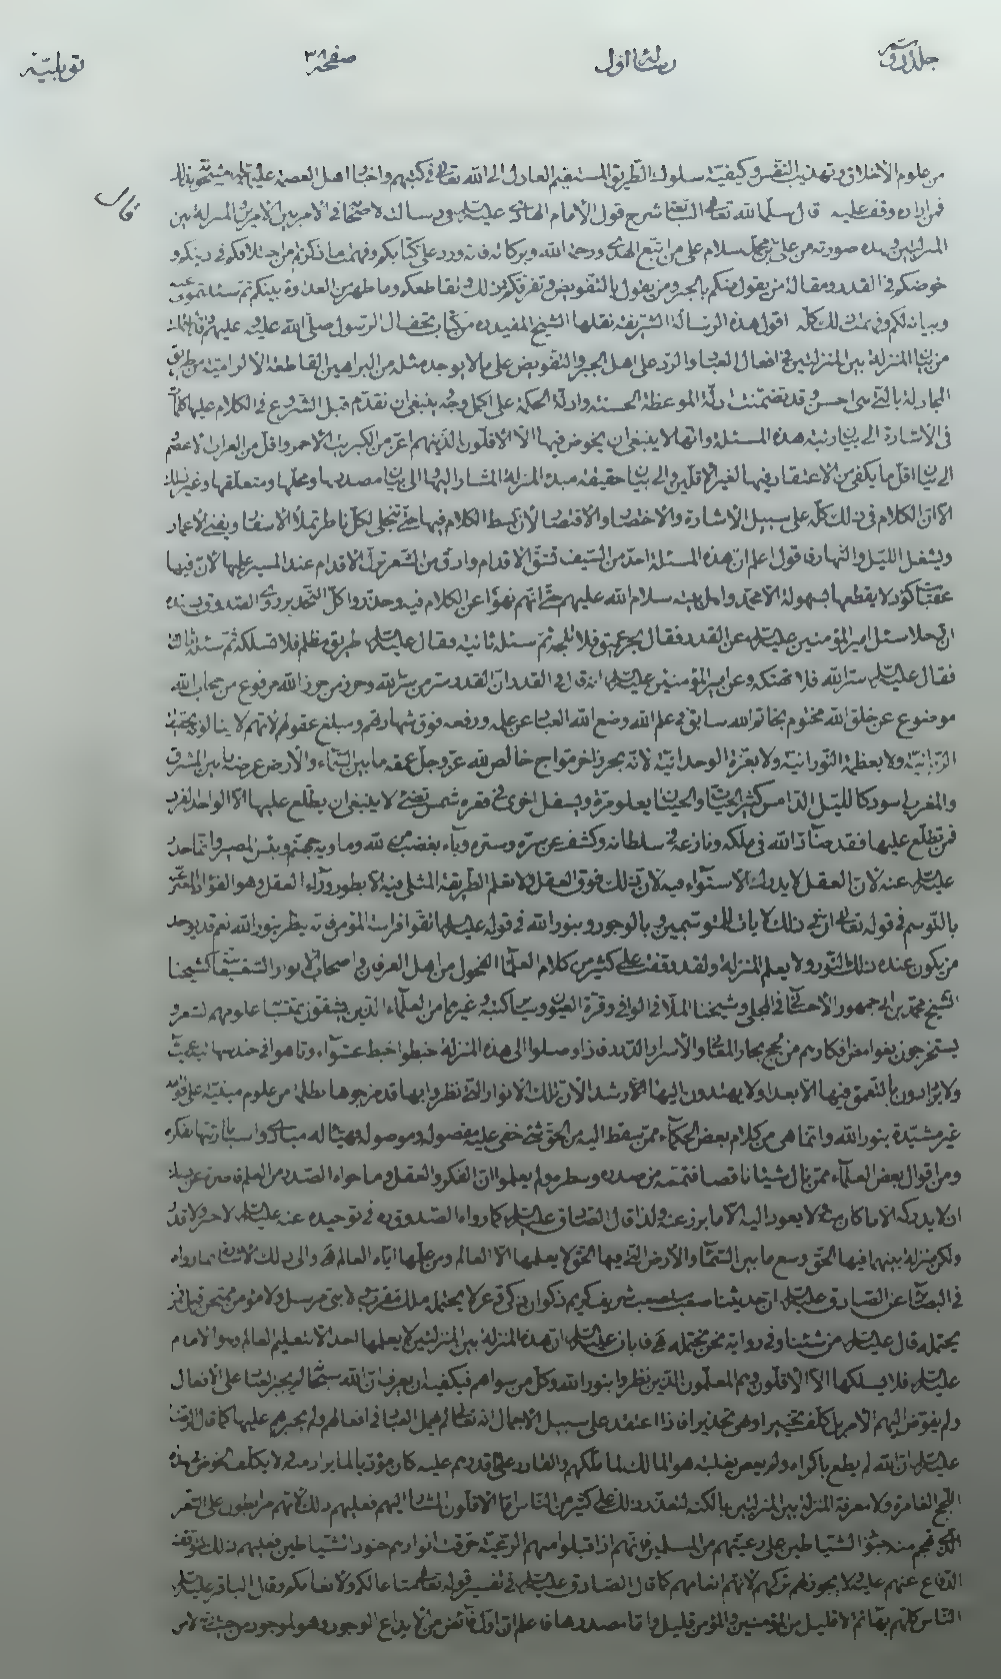 جلد دویم رسالة اول صفحه ٣٨ توبلیته
من علوم الأخلاق وتهذيب النفس وكيفية سلوك الطريق المستقيم العادل الى الله تعالى في كتبهم واخبار اهل العصمة عليهم
قال
فمن اراده وقف عليه قال سلمه الله تعالى شرح قول الامام الهادي عليه السلام في رسالته لاصحابنا في الامر بين الامرين المنزلة بين
المنزلتين هذه صورته من علي بن محمد سلام على من اتبع الهدى ورحمة الله وبركاته فانه ورد على كتابكم وفهمت ما ذكرتم من اختلافكم في دينكم و
خوضكم في القدر ومقالة من يقول منكم بالجبر ومن يقول بالتفويض وتفرقكم في ذلك وتقاطعكم وما ظهر من العداوة بينكم ثم سئلتموني عنه
وبيانه لكم وفهمت ذلك كله اقول هذه الرسالة الشريفة نقلها الشيخ المفيد من كتاب تحف ال الرسول صلى الله عليه وعليهم
من بيان المنزلة بين المنزلتين في افعال العباد والرد على اهل الجبر والتفويض على ما لا يوجد مثله من البراهين القاطعة الالزامية من طريق
المجادلة بالتي هي احسن وقد تضمنت ادلة الموعظة الحسنة وادلة الحكمة على اكمل وجه ينبغي ان نقدم قبل الشروع في الكلام عليها كلاما
في الاشارة الى بيان رتبة هذه المسئلة وانها لا ينبغي ان يخوض فيها الا الاقلون الذين هم اعز من الكبريت الاحمر واقل من الغراب الاعصم
الى بيان اقل ما يكفي من الاعتقاد فيها لغير الاقلين والى بيان حقيقة مبدء المنزلة المشار اليها الى بيان مصدرها ومحلها ومتعلقها وغير ذلك
الا ان الكلام في ذلك كله على سبيل الاشارة والاختصار والاقتصار لان بسط الكلام فيها حتى تنجلي لكل ناظر تملأ الاسفار ويفني الاعمار
ويشغل الليل والنهار فاقول اعلم ان هذه المسئلة احد من السيف تشق الاقدام وادق من الشعر تزل الاقدام عند المسير عليها لان فيها
عقبات كؤد لا يقطعها بسهولة الا محمد واهل بيته سلام الله عليهم حتى انهم نهوا عن الكلام فيه وحذروا كل التحذير روى الصدوق بسنده
ان رجلا سئل امير المؤمنين عليه السلام عن القدر فقال بحر عميق فلا تلجه ثم سئله ثانية فقال عليه السلام طريق مظلم فلا تسلكه ثم سئله ثالثة
فقال عليه السلام سر الله فلا تهتكه وعن امير المؤمنين عليه السلام انه قال في القدر ان القدر سر من سر الله وحرز من حرز الله مرفوع من حجاب الله
موضوع عن خلق الله مختوم بخاتم الله سابق في علم الله وضع الله العباد عن علمه ورفعه فوق شهاداتهم ومبلغ عقولهم لانهم لا ينالونه بحقيقة
الربانية ولا بعظمة النورانية ولا بعزة الوحدانية لانه بحر زاخر مواج خالص لله عز وجل عمقه ما بين السماء والارض عرضه ما بين المشرق
والمغرب اسود كالليل الدامس كثير الحيات والحيتان يعلو مرة ويسفل اخرى في قعره شمس تضئ لا ينبغي ان يطلع عليها الا الواحد الفرد
فمن تطلع عليها فقد ضاد الله في ملكه ونازعه في سلطانه وكشف عن سره وستره وباء بغضب من الله وماويه جهنم وبئس المصير وانما حذر
عليه السلام عنه لان العقل لا يدرك الاستواء فيه لان ذلك فوق العقل ولا تعلم الطريقة المثلى فيه الا بطور وراء العقل وهو الفؤاد المعبر عنه
بالتوسم في قوله تعالى ان في ذلك لايات للمتوسمين وبالوجود وبنور الله في قوله عليه السلام اتقوا فراسة المؤمن فانه ينظر بنور الله نعم قد يوجد
من يكون عنده ذلك النور ولا يعلم المنزلة ولقد وقفت على كثير من كلام العلماء الفحول من اهل العرفان واصحاب الانوار كشيخنا
الشيخ محمد بن ابي جمهور الاحسائي في المجلي وشيخنا الملا في الوافي وقرة العيون وسائر كتبه وغيرهما من العلماء الذين
يستخرجون بغوامض افكارهم من لجج بحار المعاني والاسرار الدرر فاذا وصلوا الى هذه المنزلة خبطوا خبط عشواء وتاهوا في
ولا يزدادون بالتعمق فيها الا بعدا ولا يهتدون اليها الا رشد الان تلك الانوار التي نظروا بها قد مزجوها بظلمات من علوم مبنية على
غير مشيدة بنور الله وانما هي من كلام بعض الحكماء ممن سقط اليه من الحق شئ خفي عليه مفصوله وموصوله
ومن اقوال بعض العلماء ممن نال شيئا ناقصا فتممه من صدره وسطره ولم يعلموا ان الفكر والعقل وما حواه الصدر من العلم قاصر عن
ان لا يدركه الا ما كان منه ولا يعود اليه الا ما برز عنه ولذا قال الصادق عليه السلام كما رواه الصدوق في توحيده عنه عليه السلام لا جبر ولا قدر
ولكن منزلة بينهما فيها الحق وسع ما بين السماء والارض التي بينهما الحق لا يعلمها الا العالم او من علمها اياه العالم والى ذلك الاشارة بما رواه
في البصائر عن الصادق عليه السلام ان حديثنا صعب مستصعب شريف كريم ذكوان ذكي وعر لا يحتمله ملك مقرب ولا نبي مرسل ولا مؤمن ممتحن قيل فمن
يحتمله قال عليه السلام من شئنا وفي رواية نحن نحتمله فابان عليه السلام ان هذه المنزلة بين المنزلتين لا يعلمها احد الا بتعليم العالم وهو الامام
عليه السلام فلا يسلكها الا الاقلون وهم المعلمون الذين نظروا بنور الله وكل من سواهم فيكفيه ان يعرف ان الله سبحانه لم يجبر خلقه على الافعال
ولم يفوض اليهم الامر بل كلف تخييرا ونهى تحذيرا فاذا اعتقد على سبيل الاجمال انه تعالى لم يهمل العباد في افعالهم ولم يجبرهم عليها كما قال الرضا
عليه السلام ان الله لم يطع باكراه ولم يعص بغلبة هو المالك لما ملكهم والقادر على ما اقدرهم عليه كان مؤديا لما يراد منه لا يكلف الخوض في هذه
اللجج الغامرة ولا معرفة المنزلة بين المنزلتين بالكنه لتعذر ذلك على كثير من الناس واما الاقلون المشار اليهم فعليهم ذلك لانهم مرابطون على الثغر
الذي يهجم منه جنود الشياطين على رعيتهم من المسلمين فانهم اذا قبلوا منهم الرعية حرقت انوارهم جنود الشياطين فعليهم ذلك
الدفاع عنهم عليه ولا يجوز لهم تركهم لانهم انعامهم كما قال الصادق عليه السلام في تفسير قوله تعالى متاعا لكم ولانعامكم وقال الباقر عليه السلام
الناس كلهم بهائم الا قليل من المؤمنين والمؤمن قليل واما مصدرها فاعلم ان اول فائض من الابداع الوجود وهو الموجود من حيث